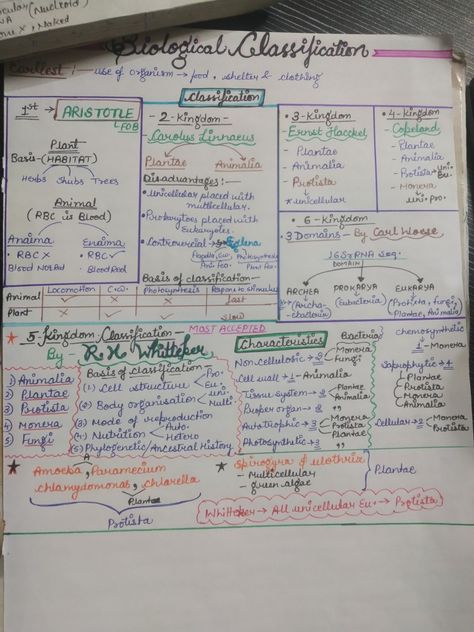 Biological Classification
Earliest :- use of organism → food, shelter & clothing
Classification
1st → ARISTOTLE
FOB
Plant
Basis - (HABITAT)
Herbs Shubs Trees
Animal
(RBC is Blood)
Anaima Enaima
• RBC X • RBC ✓
Blood Not Red Blood Red
2 - Kingdom -
Carolus Linnaeus
Plantae Animalia
Disadvantages :-
• Unicellular placed with multicellular.
• Prokaryotes placed with Eukaryotes.
• Controversial → Euglena
Basis of classification -
Locomotion C.W. Photosynthesis Respon to stimulus
Animal ✓ X X Fast
Plant X ✓ ✓ Slow
• 3 - Kingdom -
Ernst Haeckel
- Plantae
- Animalia
- Protista
* unicellular
• 4 - Kingdom
- Copeland -
- Plantae
- Animalia
- Protista → Uni Eu.
- Monera
↳ Uni • Pro.
• 6 - Kingdom
• 3 Domains - By Carl Woese
16S rRNA Seq.
DOMAIN
ARCHEA PROKARYA EUKARYA
(Archaebacteria) (Eubacteria) (Protista, fungi, Plantae, Animalia)
5 - Kingdom Classification - MOST ACCEPTED
By - R. H. Whitteker
1) Animalia
2) Plantae
3) Protista
4) Monera
5) Fungi
Basis of classification
(1) Cell structure Pro. Eu.
(2) Body organisation Uni Multi.
(3) Mode of reproduction
(4) Nutrition Auto. Hetero
(5) Phylogenetic/Ancestral History
Characteristics
Non cellulosic → 2 Bacteria Monera Fungi
Cell wall → 1 - Animalia
Tissue system → 2 Plantae Animalia
Proper organ → 2 "
Autotrophic → 3 Monera Protista Plantae
Photosynthetic → 3 "
chemosynthetic
1 - Monera
Saprophytic → 4
Plantae
Protista
Monera
Animalia
Cellular → 2 Monera Protista
★ Amoeba, Paramecium
chlamydomonas, chlorella
Plantae
Protista
★ Spirogyra & ulothrix
- Multicellular
- green algae
Plantae
Whitteker → All unicellular Eu. → Protista